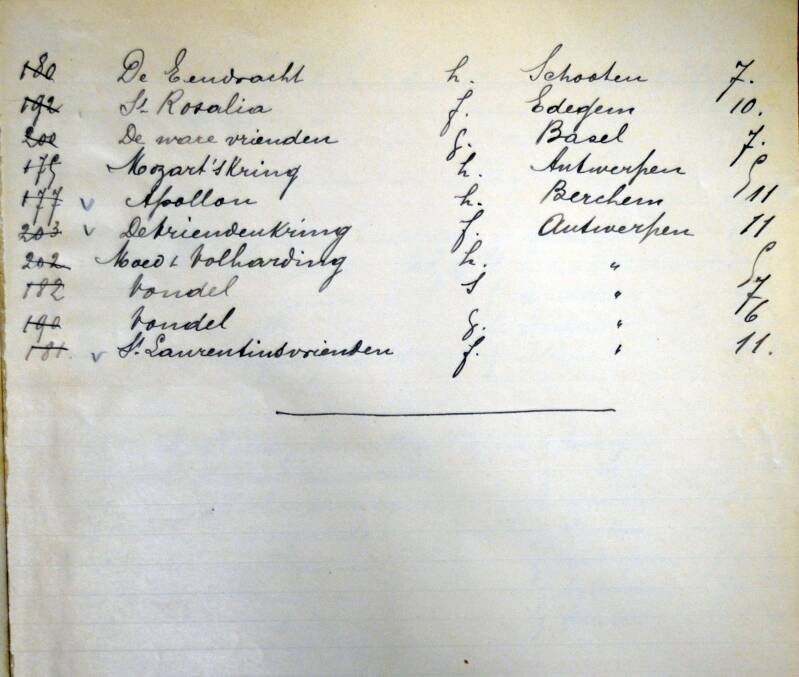 180 De Eendracht h. Schooten 7.
192 St Rosalia f. Edegem 10.
200 De ware vrienden g. Basel 7.
175 Mozart's Kring h. Antwerpen
177 v Apollon h. Berchem 11
203 v De Vriendenkring f. Antwerpen 11
202 Moed & Volharding h. "
182 Vondel " 7
190 Vondel g. " 6
181. v St. Laurentiusvrienden f. " 11.